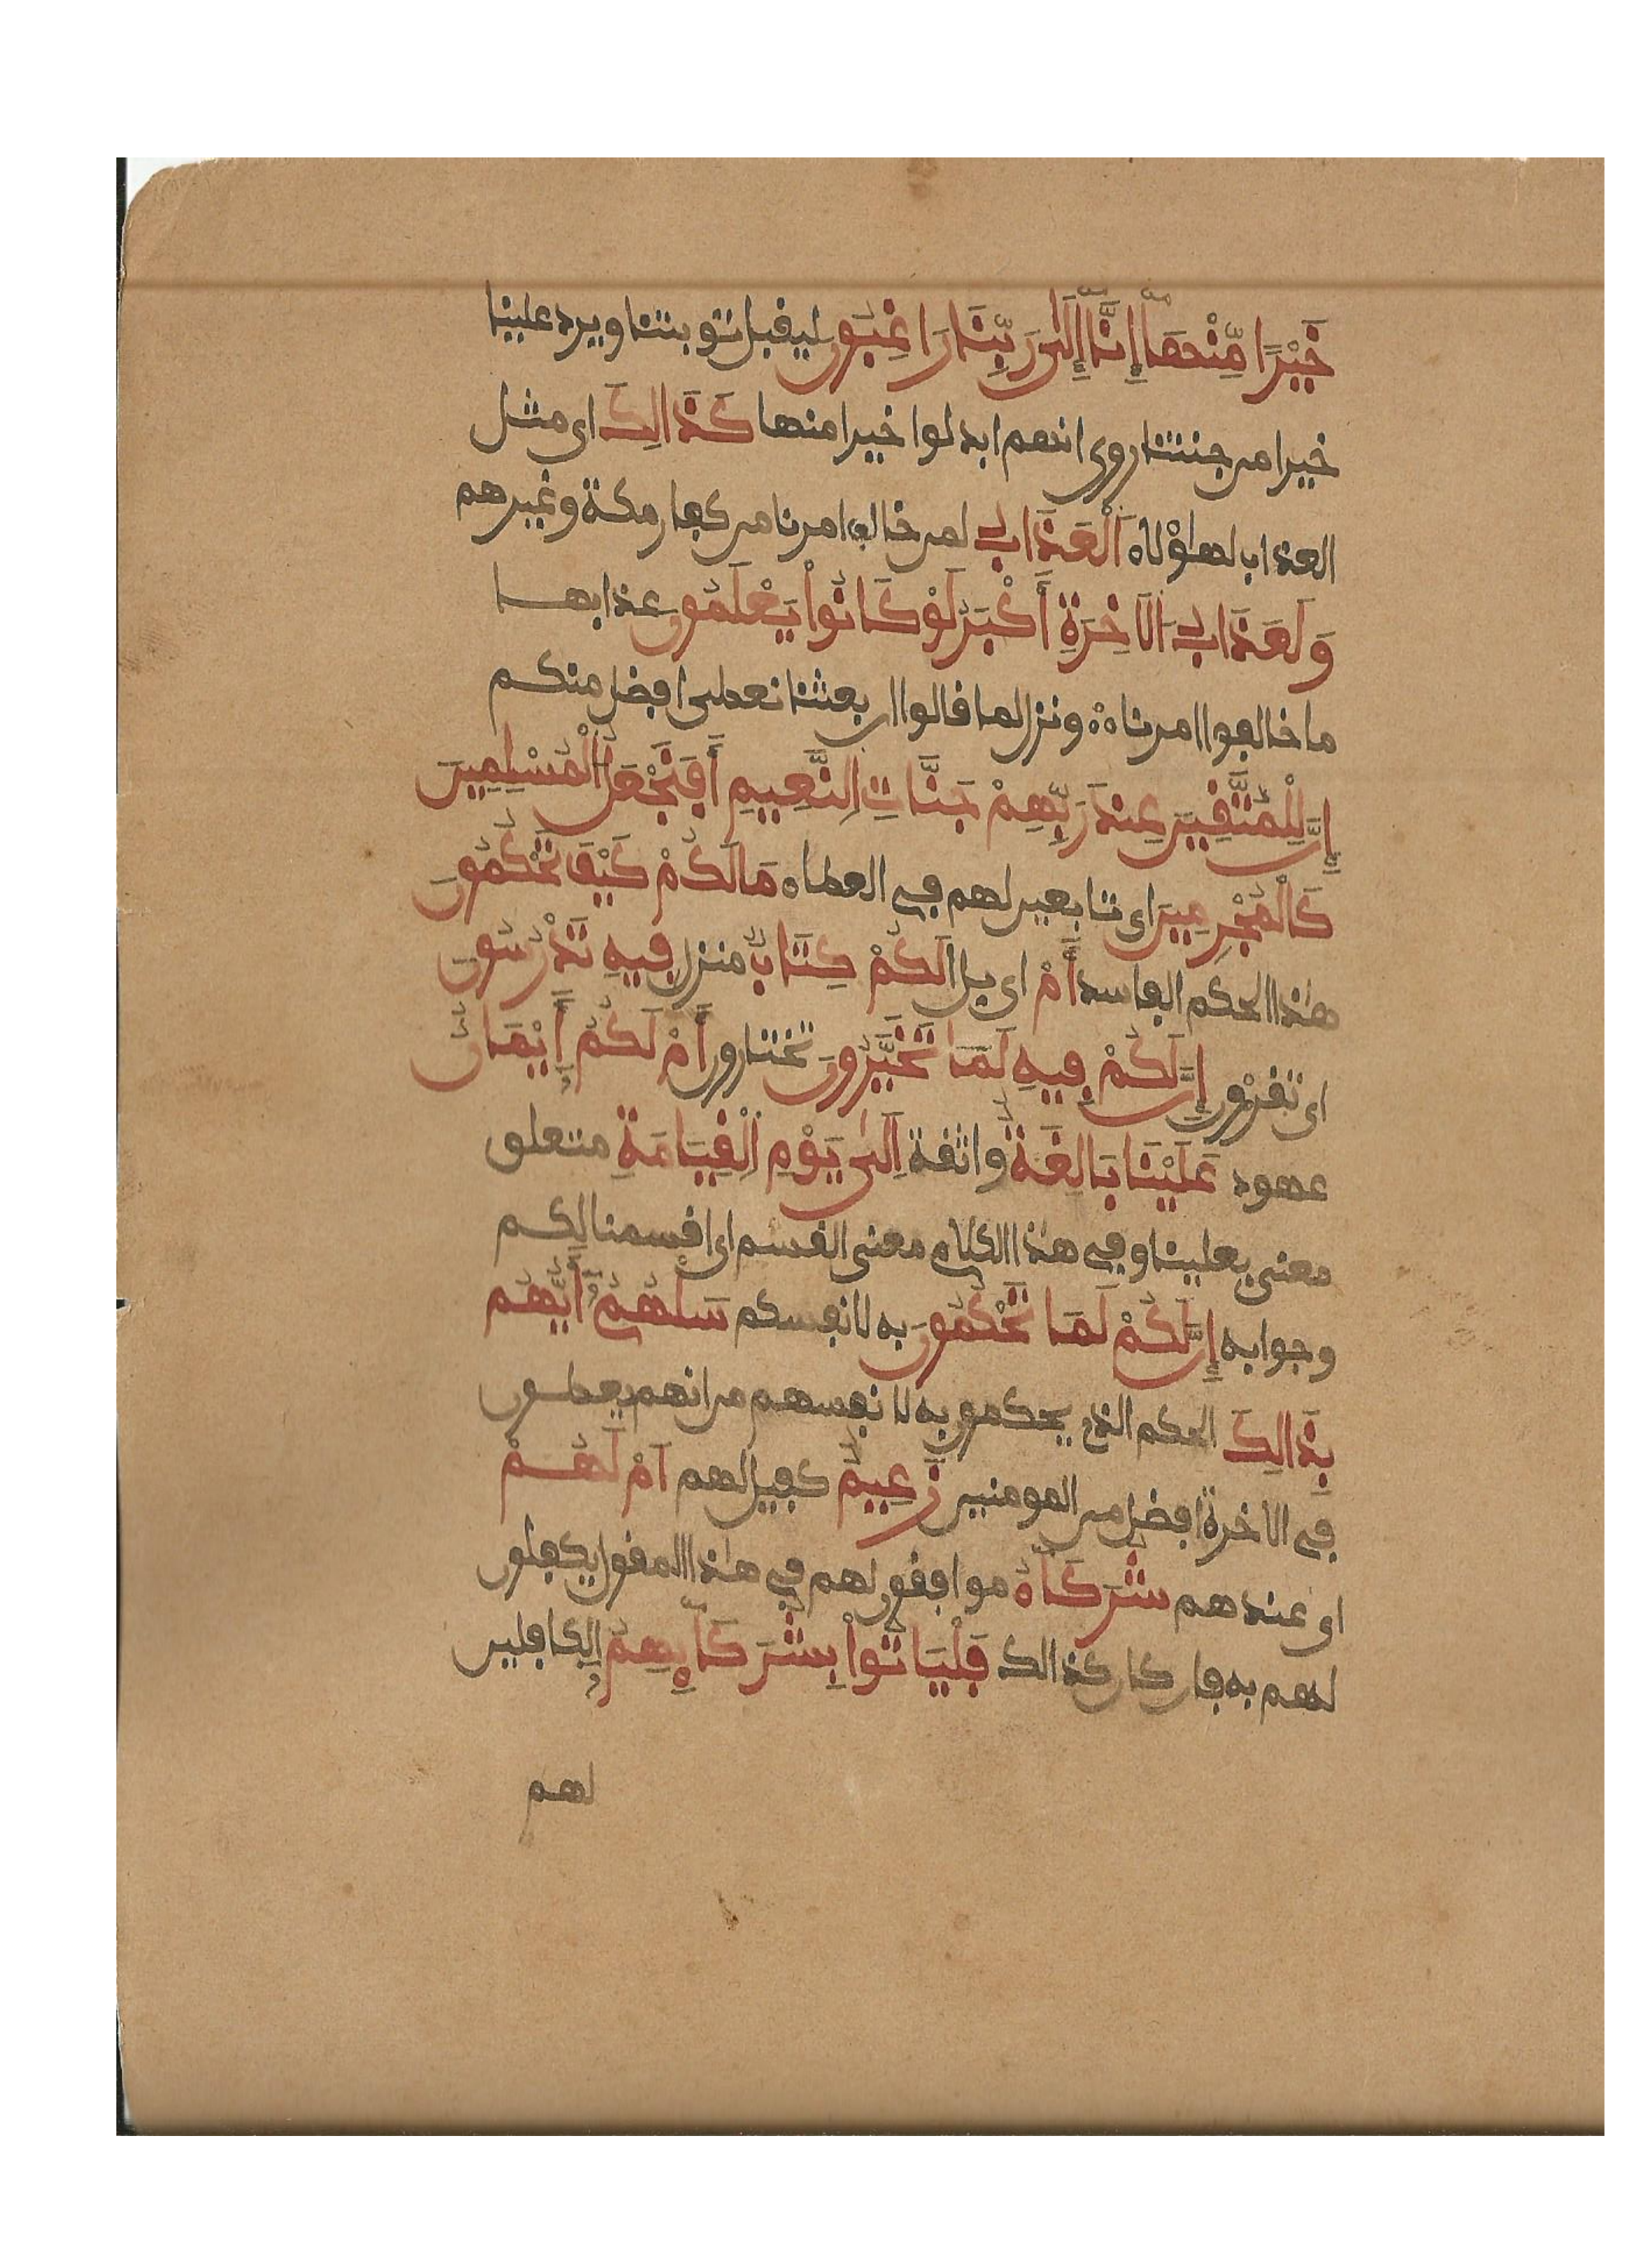 خَيْرًا مِّنْهَا إِنَّا إِلَىٰ رَبِّنَا رَاغِبُونَ ليقبل توبتنا ويرد علينا
خيرا من جنتنا روي انهم ابدلوا خيرا منها كَذَالِكَ اي مثل
العذاب لهاؤلاء اَلْعَذَابُ لمن خالف امرنا من كفار مكة وغيرهم
وَلَعَذَابُ اَلَاخِرَةِ أَكْبَرُ لَوْ كَانُواْ يَعْلَمُونَ عذابها
ما خالفوا امرنا ونزل لما قالوا ان بعثنا نعطى افضل منكم
إِنَّ لِلْمُتَّقِينَ عِندَ رَبِّهِمْ جَنَّاتِ اِلنَّعِيمِ أَفَنَجْعَلُ اُلْمُسْلِمِينَ
كَالْمُجْرِمِينَ اي تابعين لهم في العطاء مَا لَكُمْ كَيْفَ تَحْكُمُونَ
هذا الحكم الفاسد أَمْ اي بل الَكُمْ كِتَابٌ منزل فِيهِ تَدْرُسُونَ
اي تقرؤن إِنَّ لَكُمْ فِيهِ لَمَا تَخَيَّرُونَ تختارون أَمْ لَكُمُ أَيْمَانٌ
عهود عَلَيْنَا بَالِغَةٌ واثقة اِلَىٰ يَوْمِ اِلْقِيَامَةِ متعلق
معنى بعلينا وفي هذا الكلام معنى القسم اي اقسمنا لكم
وجوابه إِنَّ لَكُمْ لَمَا تَحْكُمُونَ به لانفسكم سَلْهُمُ أَيُّهُم
بِذَالِكَ الحكم الذي يحكمون به لانفسهم من انهم يعطون
في الاخرة افضل من المومنين زَعِيمٌ كفيل لهم اَمْ لَهُمْ
اي عندهم شُرَكَآءُ موافقون لهم في هذا المقول يكفلون
لهم به فان كان كذالك فَلْيَاتُواْ بِشُرَكَآئِهِمُ الكافلين
لهم